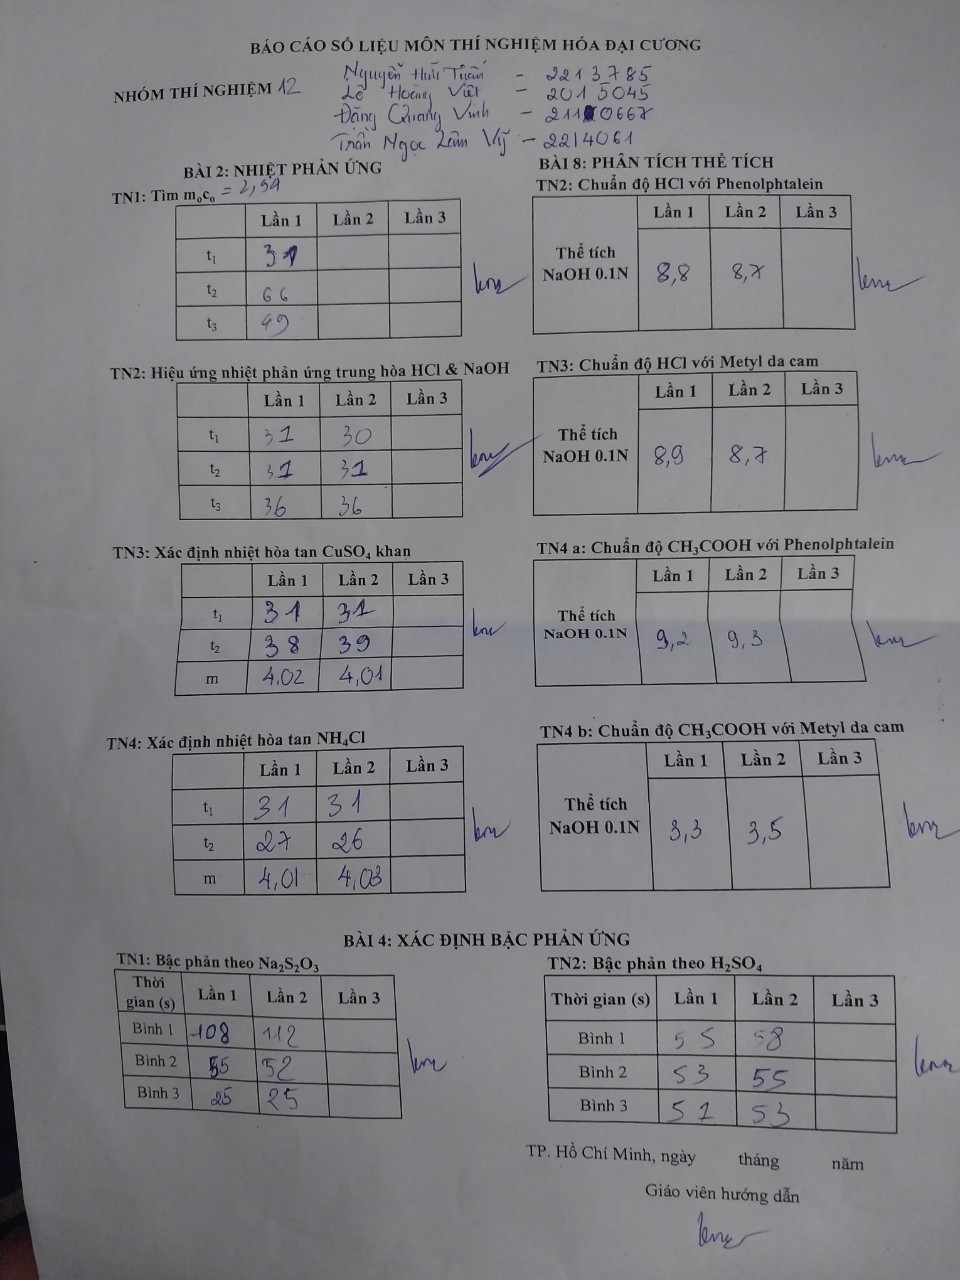 BÁO CÁO SỐ LIỆU MÔN THÍ NGHIỆM HÓA ĐẠI CƯƠNG
NHÓM THÍ NGHIỆM 12
Nguyễn Hữu Tuấn - 2213785
Lê Hoàng Việt - 2015045
Đặng Quang Vinh - 2110667
Trần Ngọc Lâm Vỹ - 2214061
BÀI 2: NHIỆT PHẢN ỨNG
TN1: Tìm m₀c₀ = 2,54
Lần 1 Lần 2 Lần 3
t₁ 31
t₂ 66
t₃ 49
TN2: Hiệu ứng nhiệt phản ứng trung hòa HCl & NaOH
Lần 1 Lần 2 Lần 3
t₁ 31 30
t₂ 31 31
t₃ 36 36
TN3: Xác định nhiệt hòa tan CuSO₄ khan
Lần 1 Lần 2 Lần 3
t₁ 31 31
t₂ 38 39
m 4.02 4,01
TN4: Xác định nhiệt hòa tan NH₄Cl
Lần 1 Lần 2 Lần 3
t₁ 31 31
t₂ 27 26
m 4,01 4,03
BÀI 8: PHÂN TÍCH THỂ TÍCH
TN2: Chuẩn độ HCl với Phenolphtalein
Lần 1 Lần 2 Lần 3
Thể tích
NaOH 0.1N 8,8 8,7
TN3: Chuẩn độ HCl với Metyl da cam
Lần 1 Lần 2 Lần 3
Thể tích
NaOH 0.1N 8,9 8,7
TN4 a: Chuẩn độ CH₃COOH với Phenolphtalein
Lần 1 Lần 2 Lần 3
Thể tích
NaOH 0.1N 9,2 9,3
TN4 b: Chuẩn độ CH₃COOH với Metyl da cam
Lần 1 Lần 2 Lần 3
Thể tích
NaOH 0.1N 3,3 3,5
BÀI 4: XÁC ĐỊNH BẬC PHẢN ỨNG
TN1: Bậc phản theo Na₂S₂O₃
Thời
gian (s) Lần 1 Lần 2 Lần 3
Bình 1 108 112
Bình 2 55 52
Bình 3 25 25
TN2: Bậc phản theo H₂SO₄
Thời gian (s) Lần 1 Lần 2 Lần 3
Bình 1 55 58
Bình 2 53 55
Bình 3 51 53
TP. Hồ Chí Minh, ngày tháng năm
Giáo viên hướng dẫn